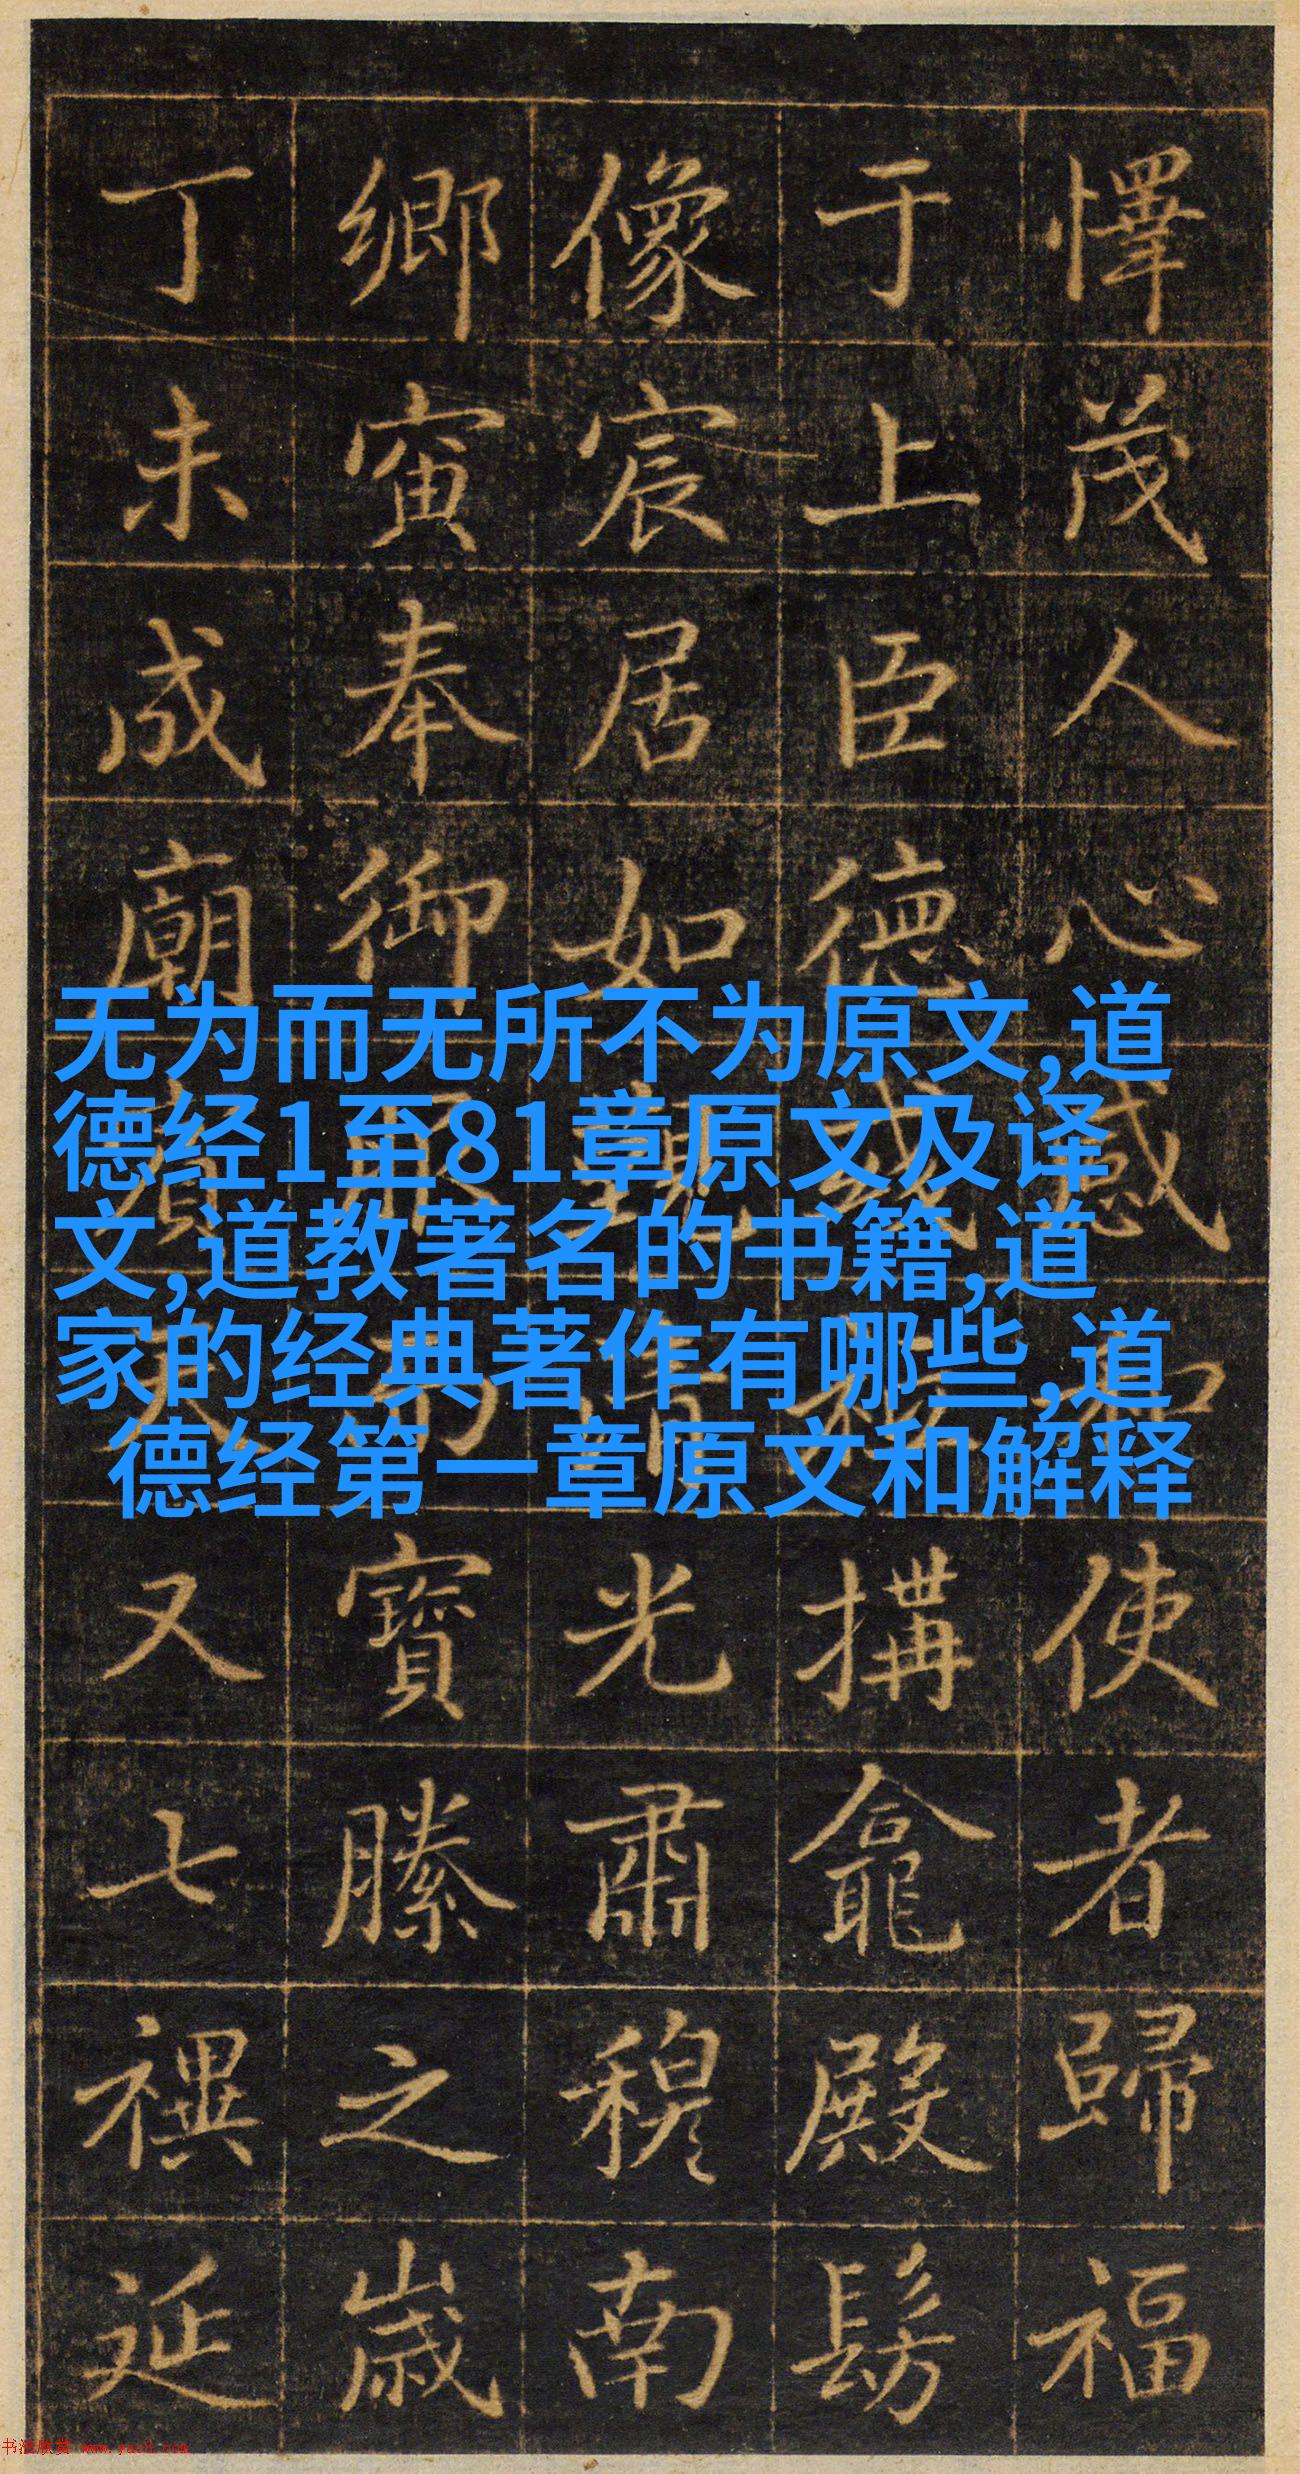 懌茂人心感和使者歸福
于上臣德搆龕殿髣
像宸居如光肅穆南
鄉寅奉御寶縢之歲
丁未成廟又七禩延
无为而无所不为原文,道
德经1至81章原文及译
文,道教著名的书籍,道
家的经典著作有哪些,道
德经第一章原文和解释
书法欣赏 www.yac8.com